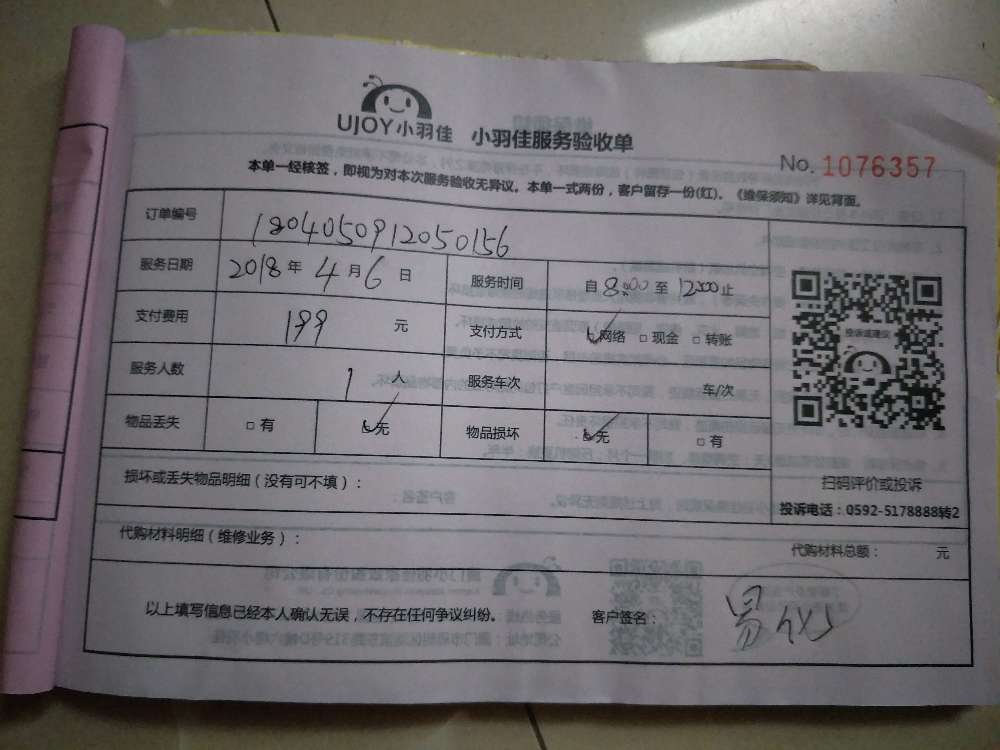 UJOY小羽佳 小羽佳服务验收单
No. 1076357
本单一经核签，即视为对本次服务验收无异议。本单一式两份，客户留存一份(红)。《维保须知》详见背面。
订单编号 1804050912050156
服务日期 2018年4月6日 服务时间 自8:00至12:00止
支付费用 199元 支付方式 网络 □现金 □转账
服务人数 1人 服务车次 车/次
物品丢失 □有 无 物品损坏 无 □有
投诉或建议
扫码评价或投诉
投诉电话：0592-5178888转2
损坏或丢失物品明细（没有可不填）：
代购材料明细（维修业务）： 代购材料总额： 元
以上填写信息已经本人确认无误，不存在任何争议纠纷。 客户签名： 易